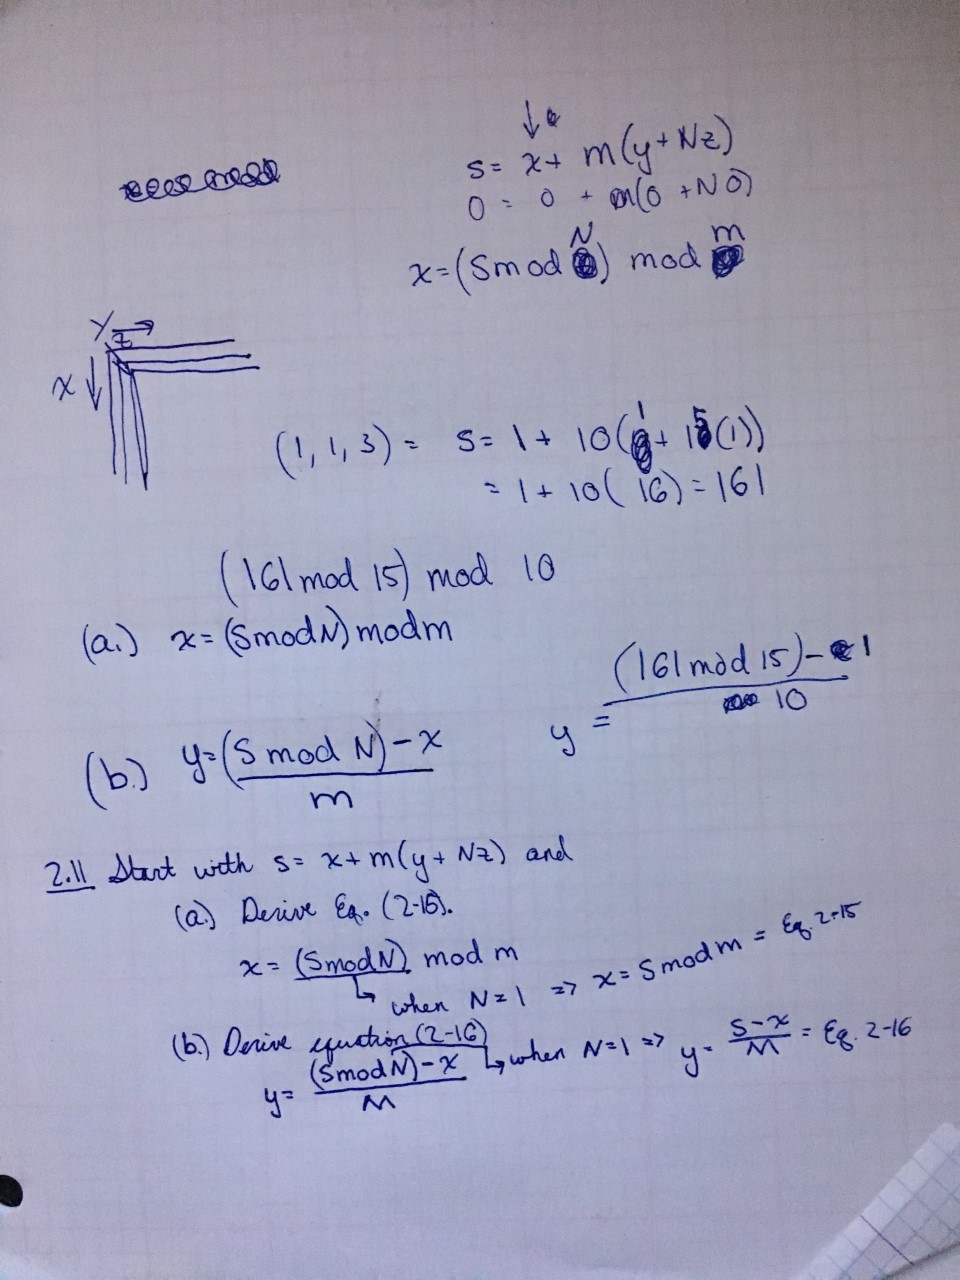 s = x + m(y + Nz)
0 = 0 + m(0 + N0)
x = (S mod N) mod m
Y
z
x
(1, 1, 3) = s = 1 + 10(1 + 15(1))
= 1 + 10( 16) = 161
(161 mod 15) mod 10
(a.) x = (S mod N) mod m
y = (161 mod 15) - 1
10
(b.) y = (S mod N) - x
m
2.11 Start with s = x + m(y + Nz) and
(a.) Derive Eq. (2-15).
x = (S mod N) mod m
when N = 1 => x = S mod m = Eq. 2-15
(b.) Derive equation (2-16)
y = (S mod N) - x
M
when N = 1 => y = S - x
M
= Eq. 2-16